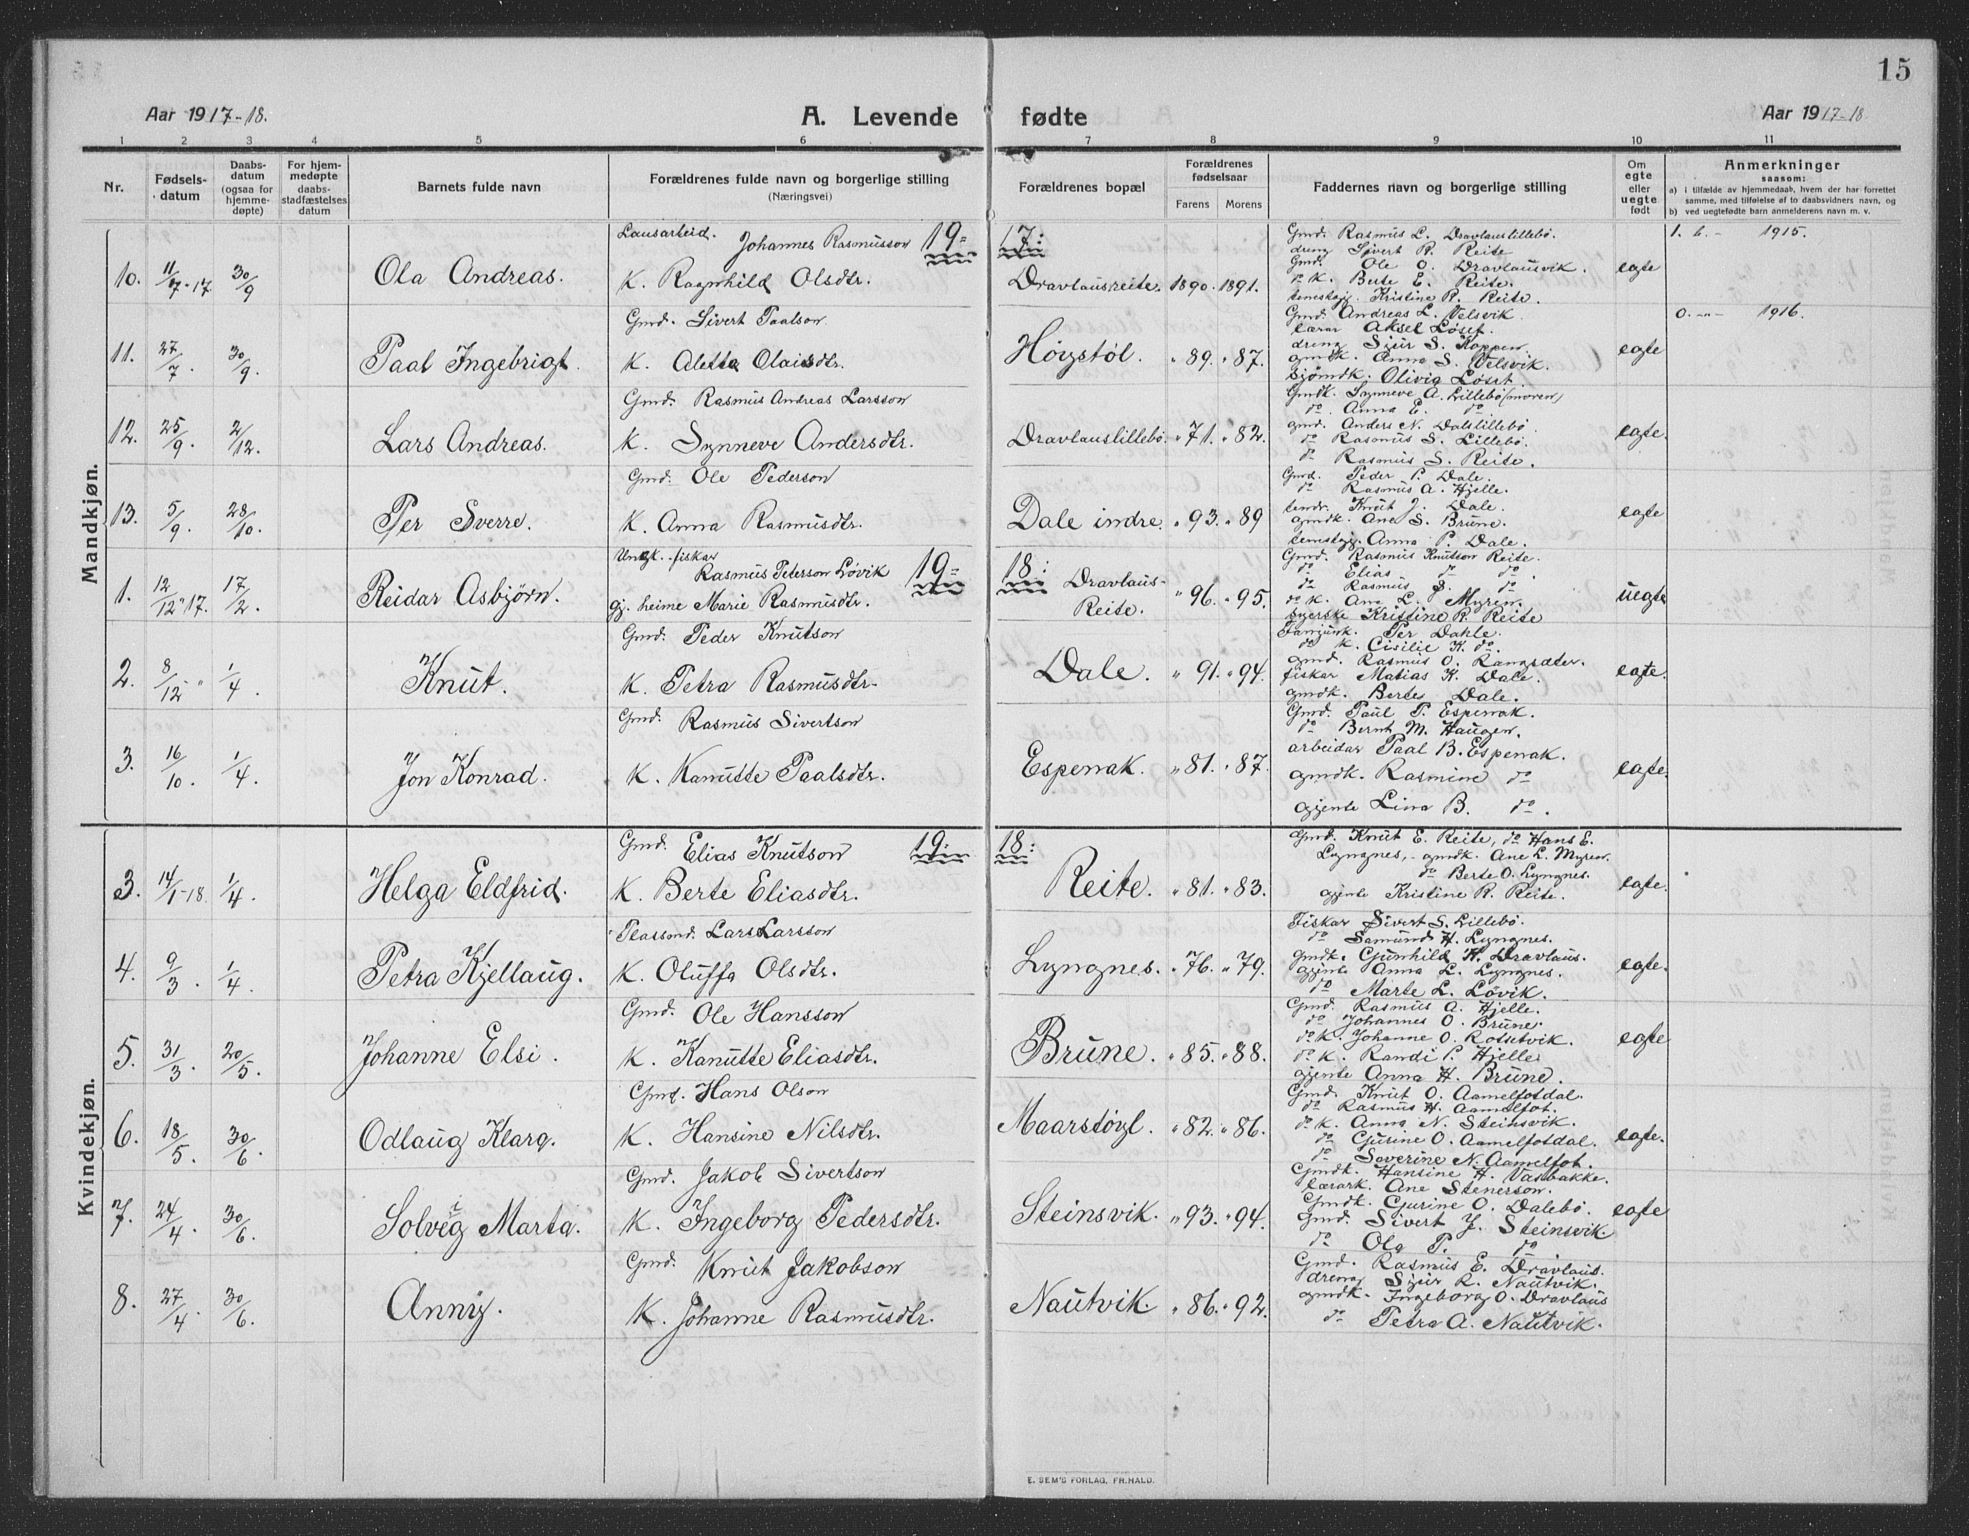 15
Aar 1917-18. A. Levende fødte Aar 1917-18
1 2 3 4 5 6 7 8 9 10 11
Nr. Fødsels-datum Daabs-datum (ogsaa for hjemme-døpte) For hjem-medøpte daabs-stadfæstelses datum Barnets fulde navn Forældrenes fulde navn og borgerlige stilling (Næringsvei) Forældrenes bopæl Forældrenes fødselsaar Farens Morens Faddernes navn og borgerlige stilling Om egte eller uegte født Anmerkninger saasom:
a) i tilfælde av hjemmedaab, hvem der har forrettet samme, med tilføielse af to daabsvidners navn, og
b) ved uegtefødte barn anmelderens navn m. v.
Mandkjøn.
19 17:
10. 11/7-17 30/9 Ola Andreas. Lausarbeid. Johannes Rasmusson
K. Ragnhild Olsdtr. Dravlausreite. 1890. 1891. egte
Gmd. Rasmus L. Dravlauslillebø.
dreng Sivert R. Reite
Gmd. Ole O. Dravlausvik.
do K. Berte E. Reite.
Kristine R. Reite.
1. b. - 1915.
11. 27/7 30/9. Paal Ingebrigt. Gmd. Sivert Paalson
K. Aletta Olaisdtr. Høystøl. " 89. " 87. egte
Gmd. Andreas L. Velsvik.
lærar Aksel Løset.
dreng Sjur S. Koppen
gmdk. Anna S. Velsvik.
Olivia Løset.
0. -"- 1916.
12. 25/9. 2/12. Lars Andreas. Gmd. Rasmus Andreas Larsson
K. Synneve Andersdtr. Dravlauslillebø. " 71. " 82. egte.
Gmdk. Synneve A. Lillebø (moren)
do. Anna E. do
gmd. Anders N. Dalslillebø.
do Rasmus S. Lillebø.
do Rasmus S. Reite.
13. 5/9. 28/10. Per Sverre. Gmd. Ole Pederson
K. Anna Rasmusdtr. Dale indre " 93. " 89 egte
Gmd. Peder P. Dale.
do Rasmus A. Hjelle.
Knut J. Dale.
gmdk. Ane S. Brune.
Anna P. Dale.
19 18:
1. 12/12 "17. 17/2. Reidar Asbjørn. Ungk. fiskar
Rasmus Peterson Løvik
gj. heime Marie Rasmusdtr. Dravlaus-
Reite. " 96. " 95. uegte
Gmd. Rasmus Knutson Reite.
do Elias do do.
do Rasmus S. do
do K. Ane L. Myren.
syerske Kristine R. Reite
2. 8/12 " 1/4. Knut. Gmd. Peder Knutson
K. Petra Rasmusdtr. Dale. " 91. " 94. egte.
Per Dahle.
do K. Cisilie K. do.
gmd. Rasmus O. Rangsæter.
fiskar Matias K. Dale.
gmdk. Berte Dale.
3. 16/10. 1/4. Jon Konrad. Gmd. Rasmus Sivertson
K. Kanutte Paalsdtr. Espenak. " 81. " 87. egte.
Gmd. Paul P. Espenak.
do Bernt M. Haugen.
arbeidar Paal B. Espenak.
gmdk. Rasmine do
gjente Lina B. do.
Kvindekjøn.
19 18:
3. 14/1-18. 1/4. Helga Eldfrid. Gmd. Elias Knutson
K. Berte Eliasdtr. Reite. " 81. " 83. egte.
Gmd. Knut E. Reite, do Hans E.
Lyngnes, gmdk. Ane L. Myren.
do Berte O. Lyngnes.
gjente Kristine R. Reite.
4. 9/3. 1/4. Petra Kjellaug. Plassmd. Lars Larsson
K. Oluffa Olsdtr. Lyngnes. " 76. " 79. egte.
Fiskar Sivert S. Lillebø.
do Samund H. Lyngnes.
gmdk. Gunhild K. Dravlaus.
gjente Anna L. Lyngnes.
do Marte L. Løvik.
5. 31/3. 20/5. Johanne Elsi. Gmd. Ole Hansson
K. Kanutte Eliasdtr. Brune. " 85. " 88. egte
Gmd. Rasmus A. Hjelle.
do Johannes O. Brune.
do K. Johanne O. Rotsetvik.
do K. Randi P. Hjelle
gjente Anna H. Brune.
6. 18/5. 30/6. Odlaug Klara. Gmd. Hans Olson
K. Hansine Nilsdtr. Maarstøyl. " 82. " 86. egte.
Gmd. Knut O. Aamelfotdal.
do Rasmus H. Aamelfot.
do K. Anna N. Steinsvik.
do Gurine O. Aamelfotdal.
do Severine N. Aamelfot.
7. 24/4. 30/6. Solveig Marta. Gmd. Jakob Sivertson
K. Ingeborg Pedersdtr. Steinsvik. " 93. " 94. egte
Gmdk. Hansine H. Vasbakke.
Lærark. Ane Stenerson.
Gmdk. Gurine O. Dalebø.
gmd. Sivert J. Steinsvik.
do Ola P. do
8. 27/4. 30/6. Anny. Gmd. Knut Jakobson
K. Johanne Rasmusdtr. Nautvik. " 86. " 92.
Gmd. Rasmus E. Dravlaus.
dreng Sjur R. Nautvik.
gmdk. Ingeborg O. Dravlaus
do Petra A. Nautvik.
E. SEM'S FORLAG, FR.HALD.